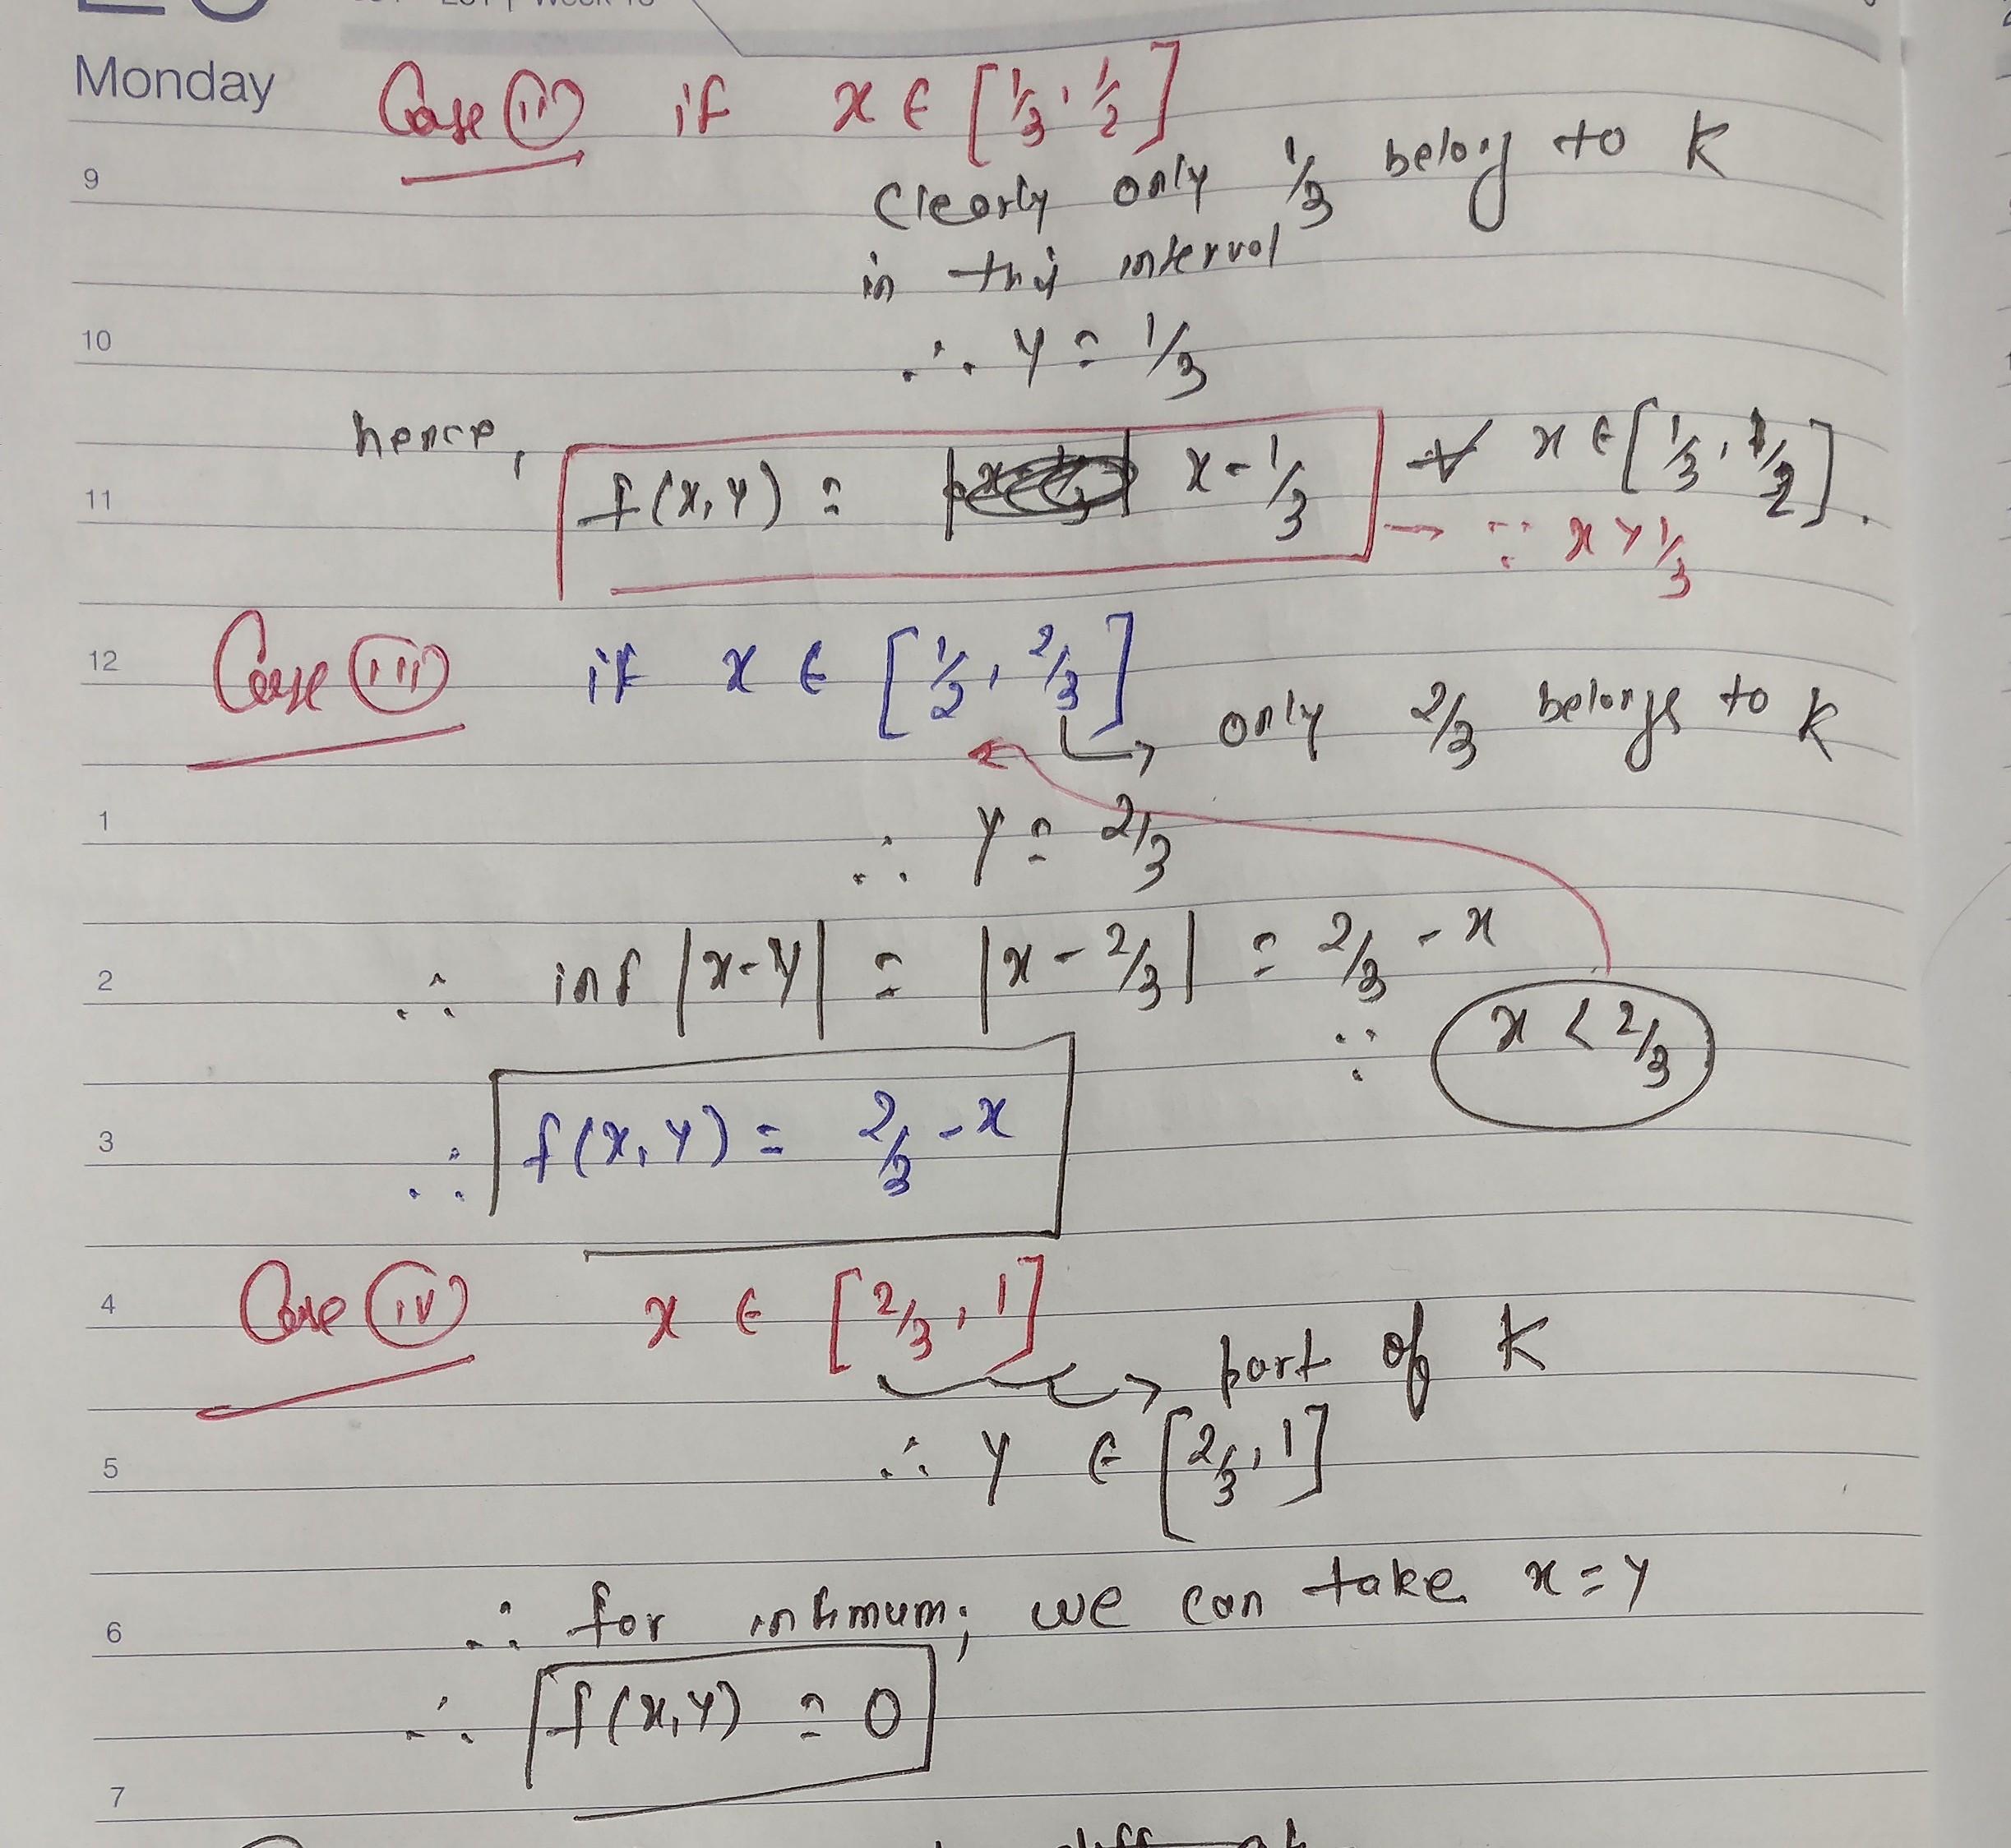 Monday
Case (ii) if x ∈ [1/3, 1/2]
9
Clearly only 1/3 belong to K
in this interval
10
∴ y = 1/3
hence,
11
f(x,y) = x - 1/3 ∀ x ∈ [1/3, 1/2].
→ ∵ x > 1/3
12
Case (iii) if x ∈ [1/2, 2/3]
↳ only 2/3 belongs to K
1
∴ y = 2/3
2
∴ inf |x-y| = |x - 2/3| = 2/3 - x
∵ x < 2/3
3
∴ f(x,y) = 2/3 - x
4
Case (iv) x ∈ [2/3, 1]
→ part of K
5
∴ y ∈ [2/3, 1]
6
∴ for infimum; we can take x = y
∴ f(x,y) = 0
7